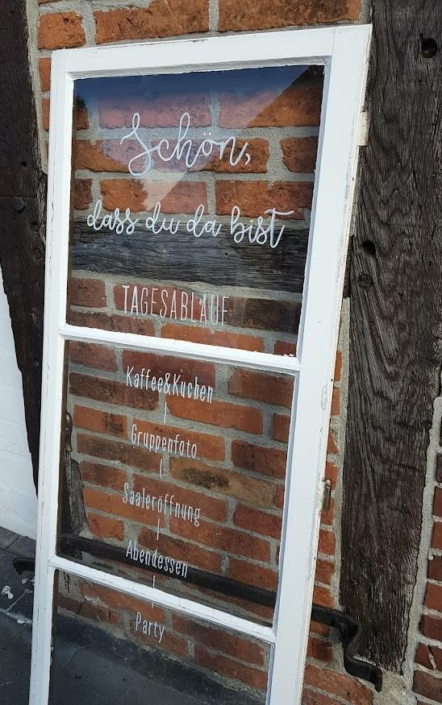 Schön,
dass du da bist
TAGESABLAUF
Kaffee&Kuchen
Gruppenfoto
Saaleröffnung
Abendessen
Party